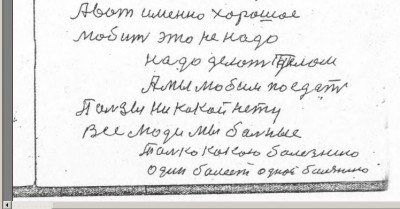 А вот именно хорошое
мобит это не надо
надо делот телом
А мы мобим поедат
Палзы никокой нету
Все моди мы балные
талко кокою балезнию
один балеет одной балезнию